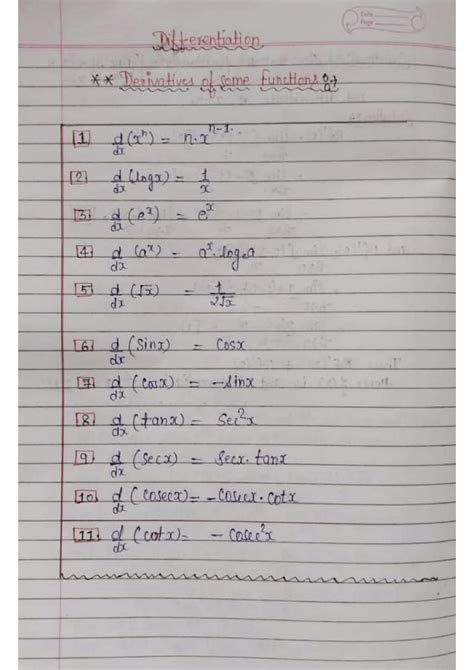 Date
Page
Differentiation
** Derivatives of some functions :-
1 d/dx (xⁿ) = n·xⁿ⁻¹.
2 d/dx (logx) = 1/x
3 d/dx (eˣ) = eˣ
4 d/dx (aˣ) = aˣ·logₑa
5 d/dx (√x) = 1/2√x
6 d/dx (Sinx) = Cosx
7 d/dx (Cosx) = -Sinx
8 d/dx (tanx) = Sec²x
9 d/dx (Secx) = Secx·tanx
10 d/dx (Cosecx) = -Cosecx·Cotx
11 d/dx (Cotx) = -Cosec²x